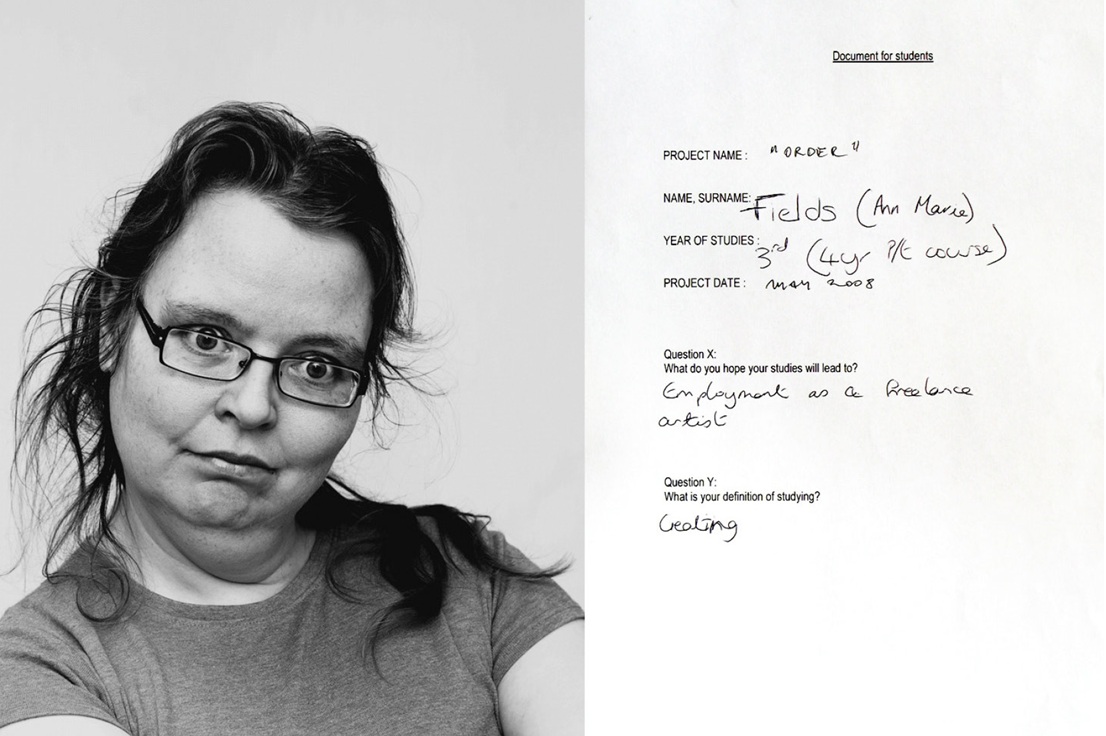 Document for students
PROJECT NAME : "ORDER"
NAME, SURNAME: Fields (Ann Marie)
YEAR OF STUDIES : 3rd (4yr P/t course)
PROJECT DATE : MAY 2008
Question X:
What do you hope your studies will lead to?
Employment as a freelance
artist
Question Y:
What is your definition of studying?
Creating